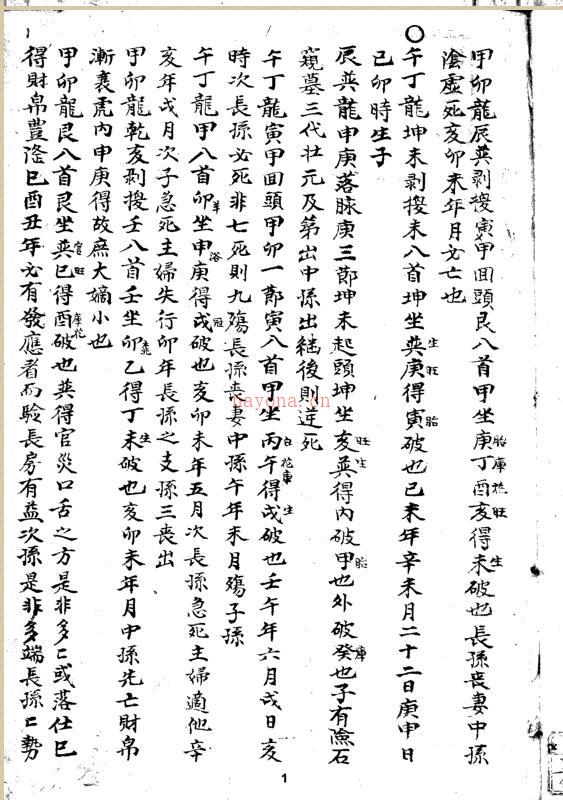 甲卯龍辰巽剥換寅甲回頭艮八首甲坐庚丁酉亥得未破也長孫喪妻中孫
陰虛死亥卯未年月必亡也
午丁龍坤未剥換未八首坤坐巽庚得寅破也已未年辛未月二十二日庚申日
已卯時生子
辰巽龍申庚落脉庚三節坤未起頭坤坐亥巽得內破甲也外破癸也子有險石
窺墓三代壮元及第出中孫出継後則逆死
午丁龍寅甲回頭甲卯一節寅八首甲坐丙午得戌破也壬午年六月戌日亥
時次長孫必死非七死則九殤長孫喪妻中孫午年未月殤子孫
午丁龍甲八首卯坐申庚得戌破也亥卯未年五月次長孫急死主婦適他辛
亥年戌月次子急死主婦失行卯年長孫之支孫三喪出
甲卯龍乾亥剥換壬八首壬坐卯乙得丁未破也亥卯未年月中孫先亡財帛
漸衰虎內申庚得故庶大嫡小也
甲卯龍艮八首艮坐巽巳得酉破也巽得官災口舌之方是非多〻或落仕巳
得財帛豊隆巳酉丑年必有發應者而驗長房有益次孫是非多端長孫〻勢
1
hayona.cn